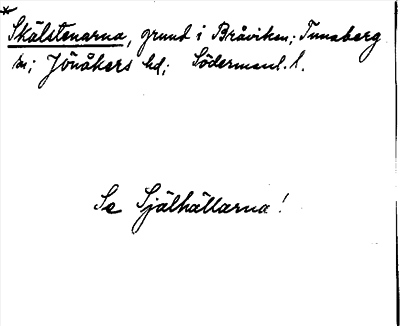 Skälstenarna, grund i Bråviken; Tunaberg
sn; Jönåkers hd; Södermanl. l.
Se Själhällarna!